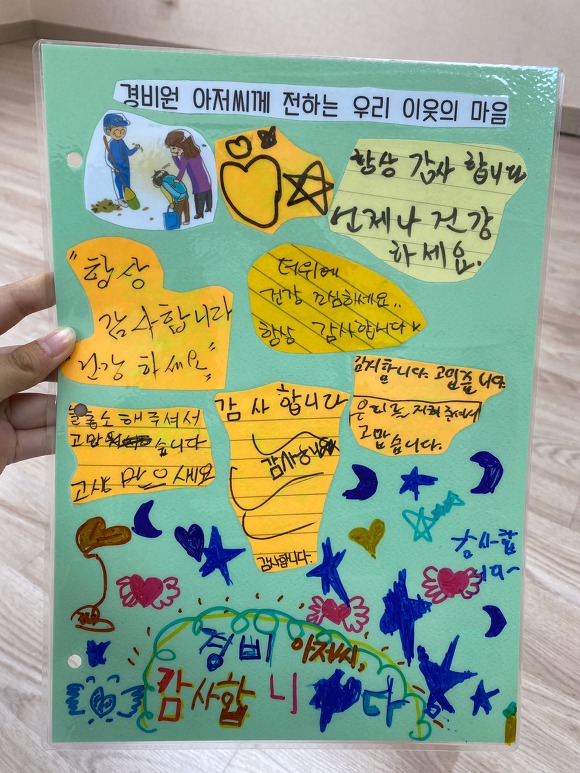 경비원 아저씨께 전하는 우리 이웃의 마음
항상 감사 합니다
언제나 건강
하세요.
"항상
감사합니다
건강 하세요"
더위에
건강 조심하세요..
항상 감사합니다
감사합니다. 고맙습니다.
우리를 지켜주셔서
고맙습니다.
해주셔서
고맙 습니다
고생 많으세요
감사합니다
감사합니다
감사합니다.
감사합
니다~
경비 아저씨,
감사합니다